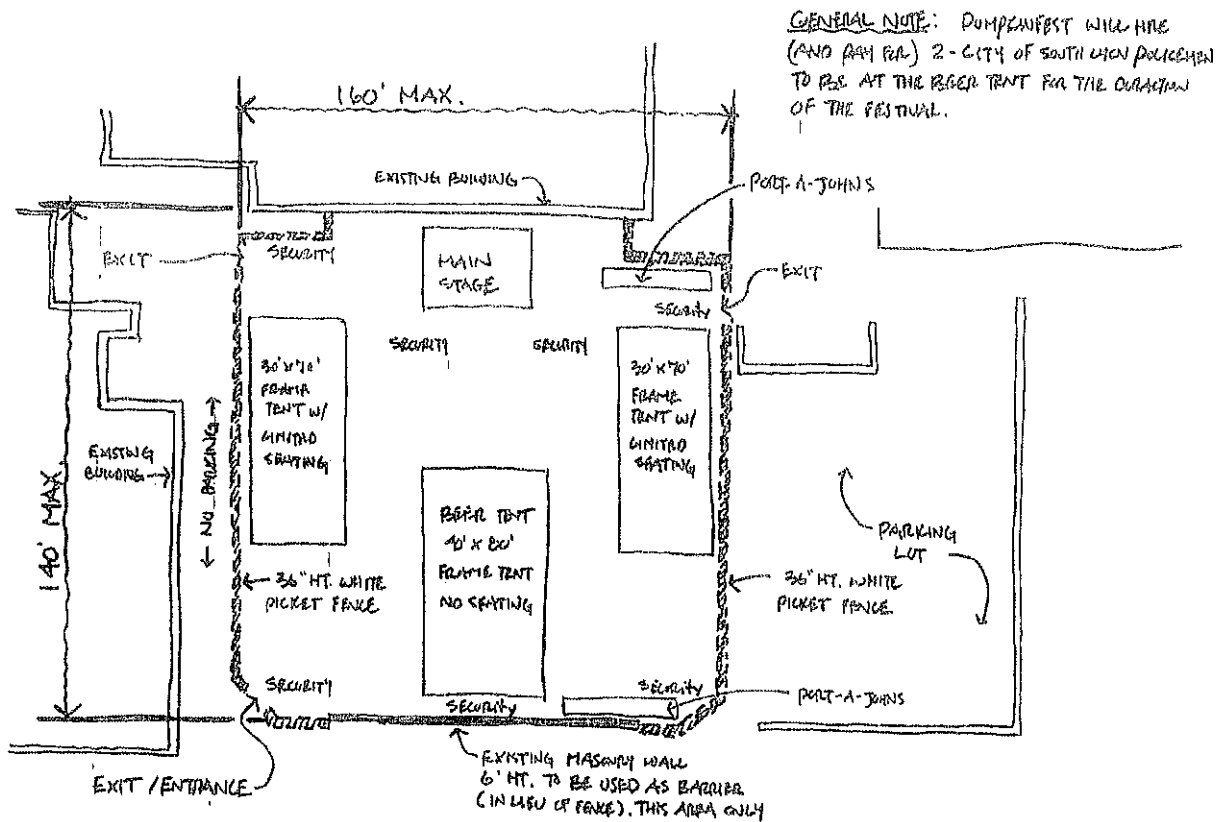 GENERAL NOTE: PUMPKINFEST WILL HIRE
(AND PAY FOR) 2-CITY OF SOUTH LYON POLICEMEN
TO BE AT THE BEER TENT FOR THE DURATION
OF THE FESTIVAL.
160' MAX.
EXISTING BUILDING
PORT-A-JOHNS
EXIT
SECURITY
MAIN
STAGE
EXIT
SECURITY
SECURITY
SECURITY
30'x70'
FRAME
TENT W/
LIMITED
SEATING
30'x70'
FRAME
TENT W/
LIMITED
SEATING
NO PARKING
EXISTING
BUILDING
140' MAX.
BEER TENT
40' x 80'
FRAME TENT
NO SEATING
PARKING
LOT
36" HT. WHITE
PICKET FENCE
36" HT. WHITE
PICKET FENCE
SECURITY
SECURITY
SECURITY
PORT-A-JOHNS
EXIT/ENTRANCE
EXISTING MASONRY WALL
6' HT. TO BE USED AS BARRIER
(IN LIEU OF FENCE). THIS AREA ONLY